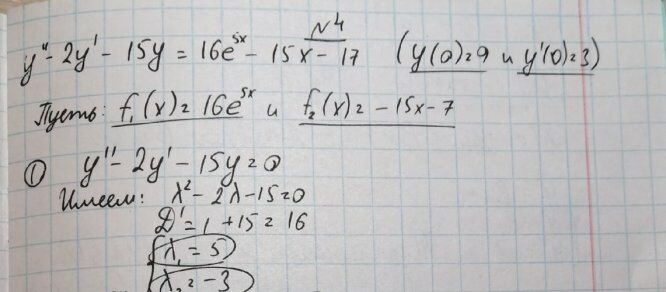 N4
y'' - 2y' - 15y = 16e^{5x} - 15x - 17 (y(0)=9 и y'(0)=3)
Пусть: f₁(x) = 16e^{5x} и f₂(x) = -15x-7
① y'' - 2y' - 15y = 0
Имеем: λ² - 2λ - 15 = 0
D' = 1 + 15 = 16
λ₁ = 5
λ₂ = -3